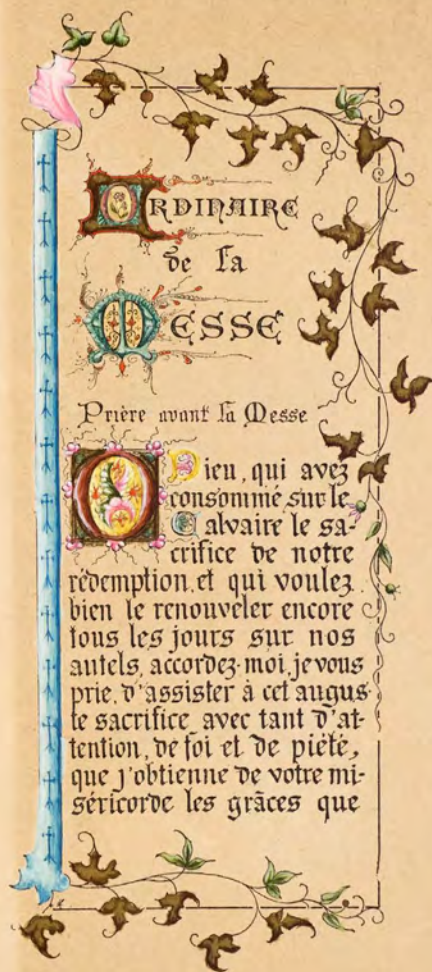 ORDINAIRE
de la
MESSE
Prière avant la Messe
O Dieu, qui avez
consommé sur le
Calvaire le sa-
crifice de notre
rédemption, et qui voulez
bien le renouveler encore
tous les jours sur nos
autels, accordez-moi, je vous
prie, d'assister à cet augus-
te sacrifice avec tant d'at-
tention, de foi et de piété,
que j'obtienne de votre mi-
séricorde les grâces que